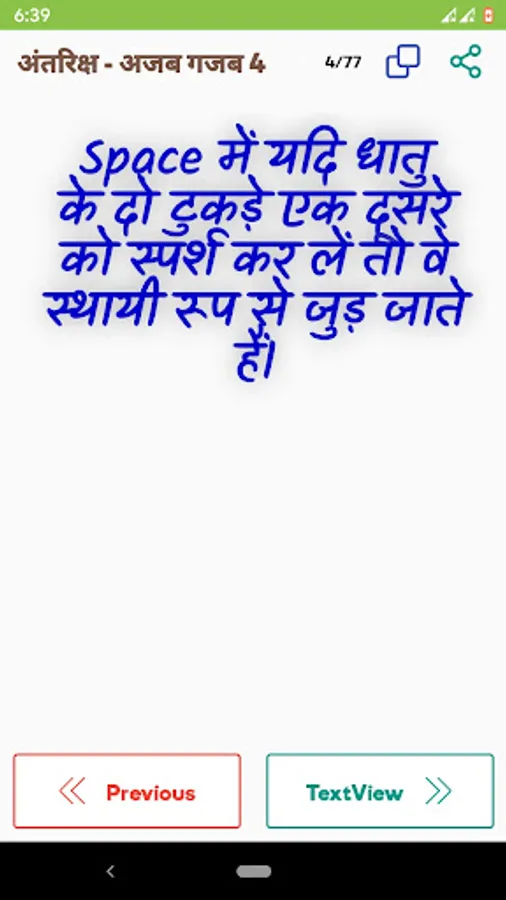 6:39
अंतरिक्ष - अजब गजब 4
4/77
Space में यदि धातु
के दो टुकड़े एक दूसरे
को स्पर्श कर लें तौ वे
स्थायी रूप से जुड़ जाते
हैं।
Previous
TextView